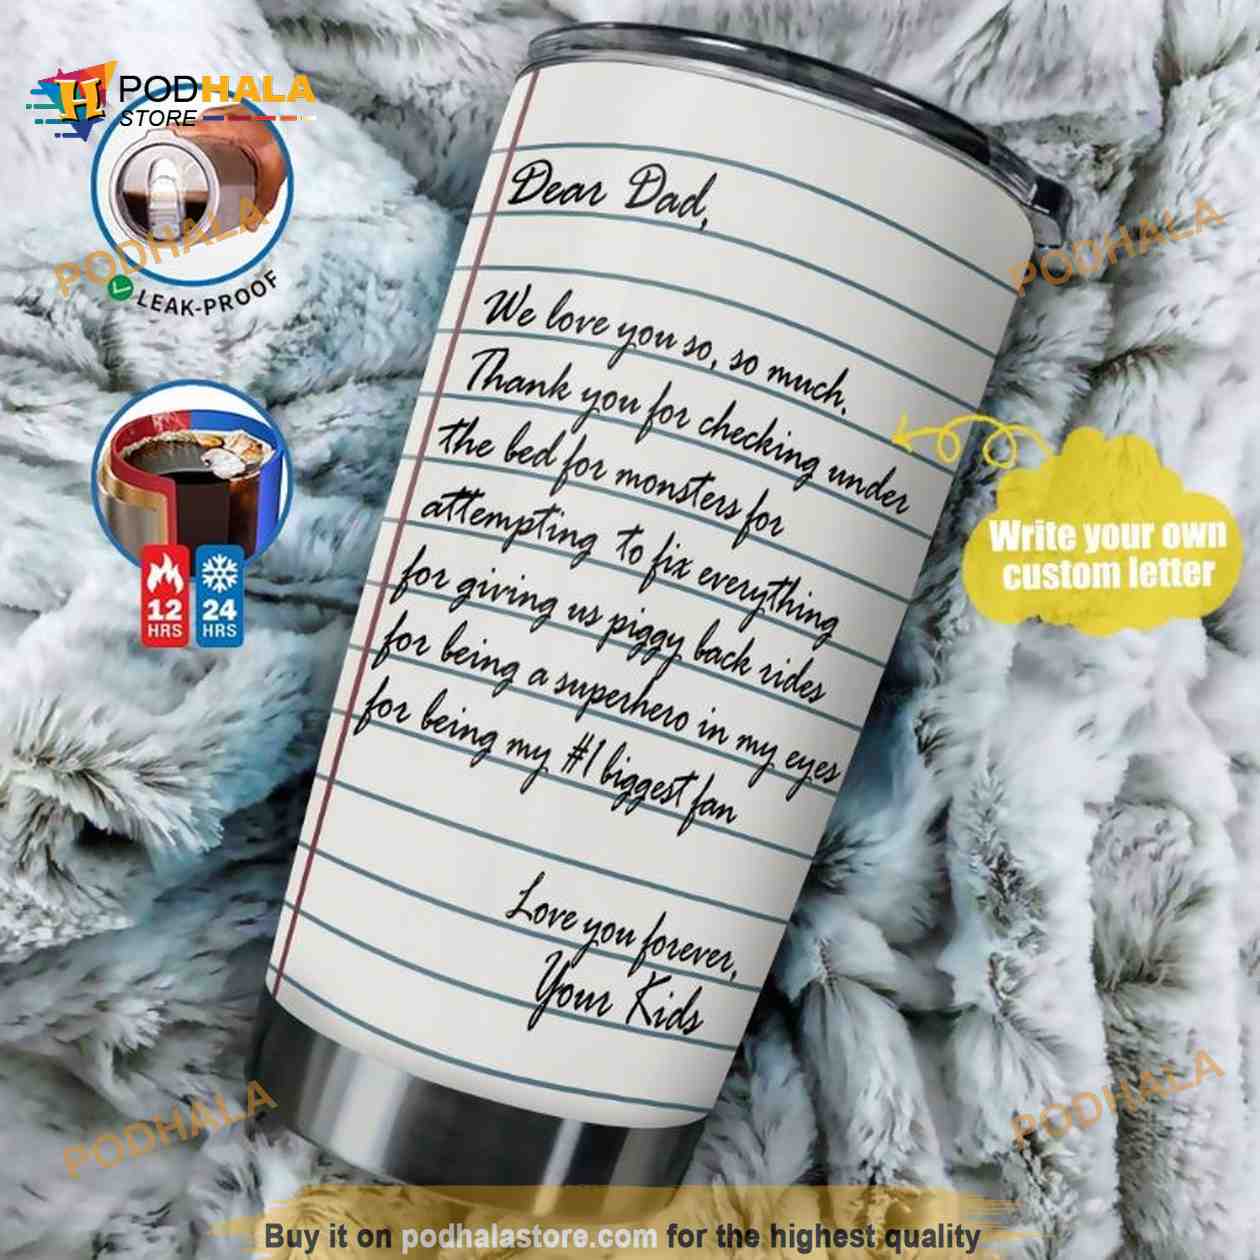 PODHALA
STORE
LEAK-PROOF
12
HRS
24
HRS
Dear Dad,
We love you so, so much.
Thank you for checking under
the bed for monsters for
attempting to fix everything
for giving us piggy back rides
for being a superhero in my eyes
for being my #1 biggest fan
Love you forever,
Your Kids
Write your own
custom letter
PODHALA
PODHALA
PODHALA
PODHALA
Buy it on podhalastore.com for the highest quality